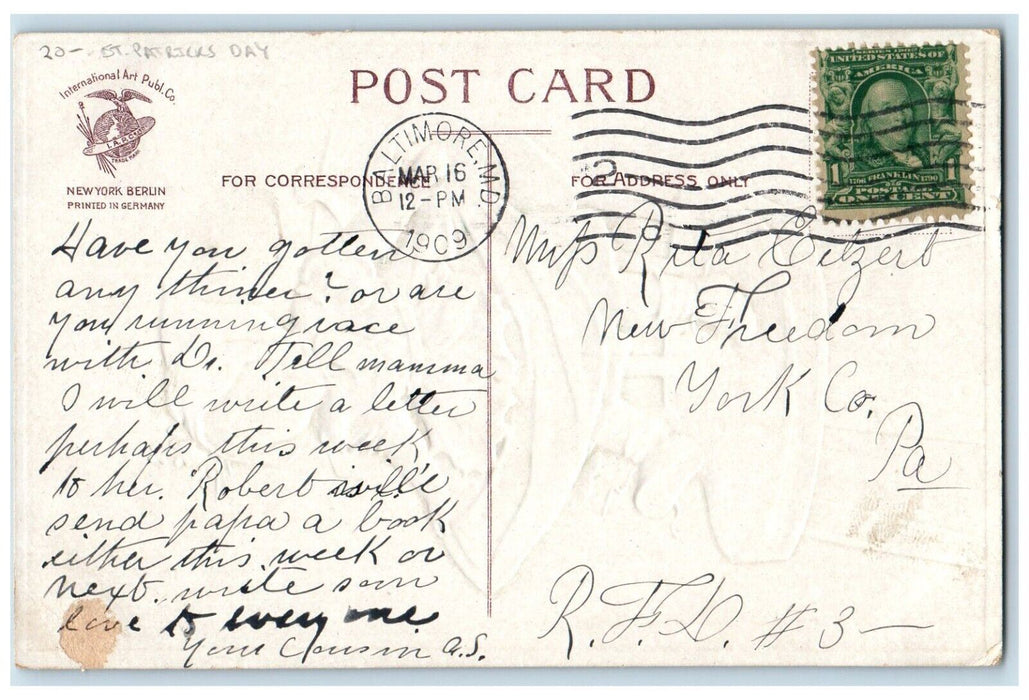 20- ST. PATRICKS DAY
International Art Publ. Co.
I.A.P.CO
TRADE MARK
NEW YORK BERLIN
PRINTED IN GERMANY
POST CARD
FOR CORRESPONDENCE
FOR ADDRESS ONLY
BALTIMORE, MD.
MAR 16
12-PM
1909
SERIES 1902
UNITED STATES OF
AMERICA
1 1
1706 FRANKLIN 1790
POSTAGE
ONE CENT
Have you gotten
any thiner? or are
you running race
with Dr. Tell mamma
I will write a letter
perhaps this week
to her. Robert will
send papa a book
either this week or
next. write soon
love to every one
Your Cousin A.S.
Miss Rita
New Freedom
York Co.
Pa
R.F.D. #3-